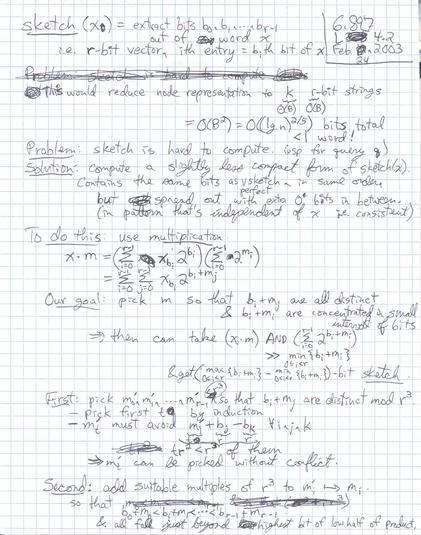 sketch(x) = extract bits b₀, b₁, ..., b_{r-1}
out of word x
i.e. r-bit vector, ith entry = b_i th bit of x
6.897
L 4.2
Feb 2003
24
Problem: sketch is hard to compute
this would reduce node representation to k r-bit strings
O(B) O(B)
= O(B²) = O((lg n)^{2/5}) bits total
< 1 word!
Problem: sketch is hard to compute. (esp for query q)
Solution: compute a slightly less compact form of sketch(x).
Contains the same bits as perfect sketch, in same order,
but spread out with extra 0 bits in between.
(in pattern that's independent of x i.e. consistent)
To do this: use multiplication
x · m = (Σ_{i=0}^{r-1} x_{b_i} 2^{b_i})(Σ_{i=0}^{r-1} 2^{m_i})
= Σ_{i=0}^{r-1} Σ_{j=0}^{r-1} x_{b_i} 2^{b_i+m_j}
Our goal: pick m so that b_i+m_j are all distinct
& b_i+m_i are concentrated in small
intervals of bits
⇒ then can take (x·m) AND (Σ_{i=0}^{r-1} 2^{b_i+m_i})
>> min_{0≤i<r} {b_i+m_i}
& get (max_{0≤i<r} {b_i+m_i} - min_{0≤i<r} {b_i+m_i})-bit sketch.
First: pick m'₀, m'₁, ..., m'_{r-1} so that b_i+m_j are distinct mod r³
- pick first t by induction
- m'_t must avoid m'_i + b_j - b_k ∀ i, j, k
t r r
tr² < r³ of them
⇒ m'_t can be picked without conflict.
Second: add suitable multiples of r³ to m'_i ↦ m_i
so that
b₀+m₀ < b₁+m₁ < ... < b_{r-1}+m_{r-1}
& all fall just beyond highest bit of low half of product,